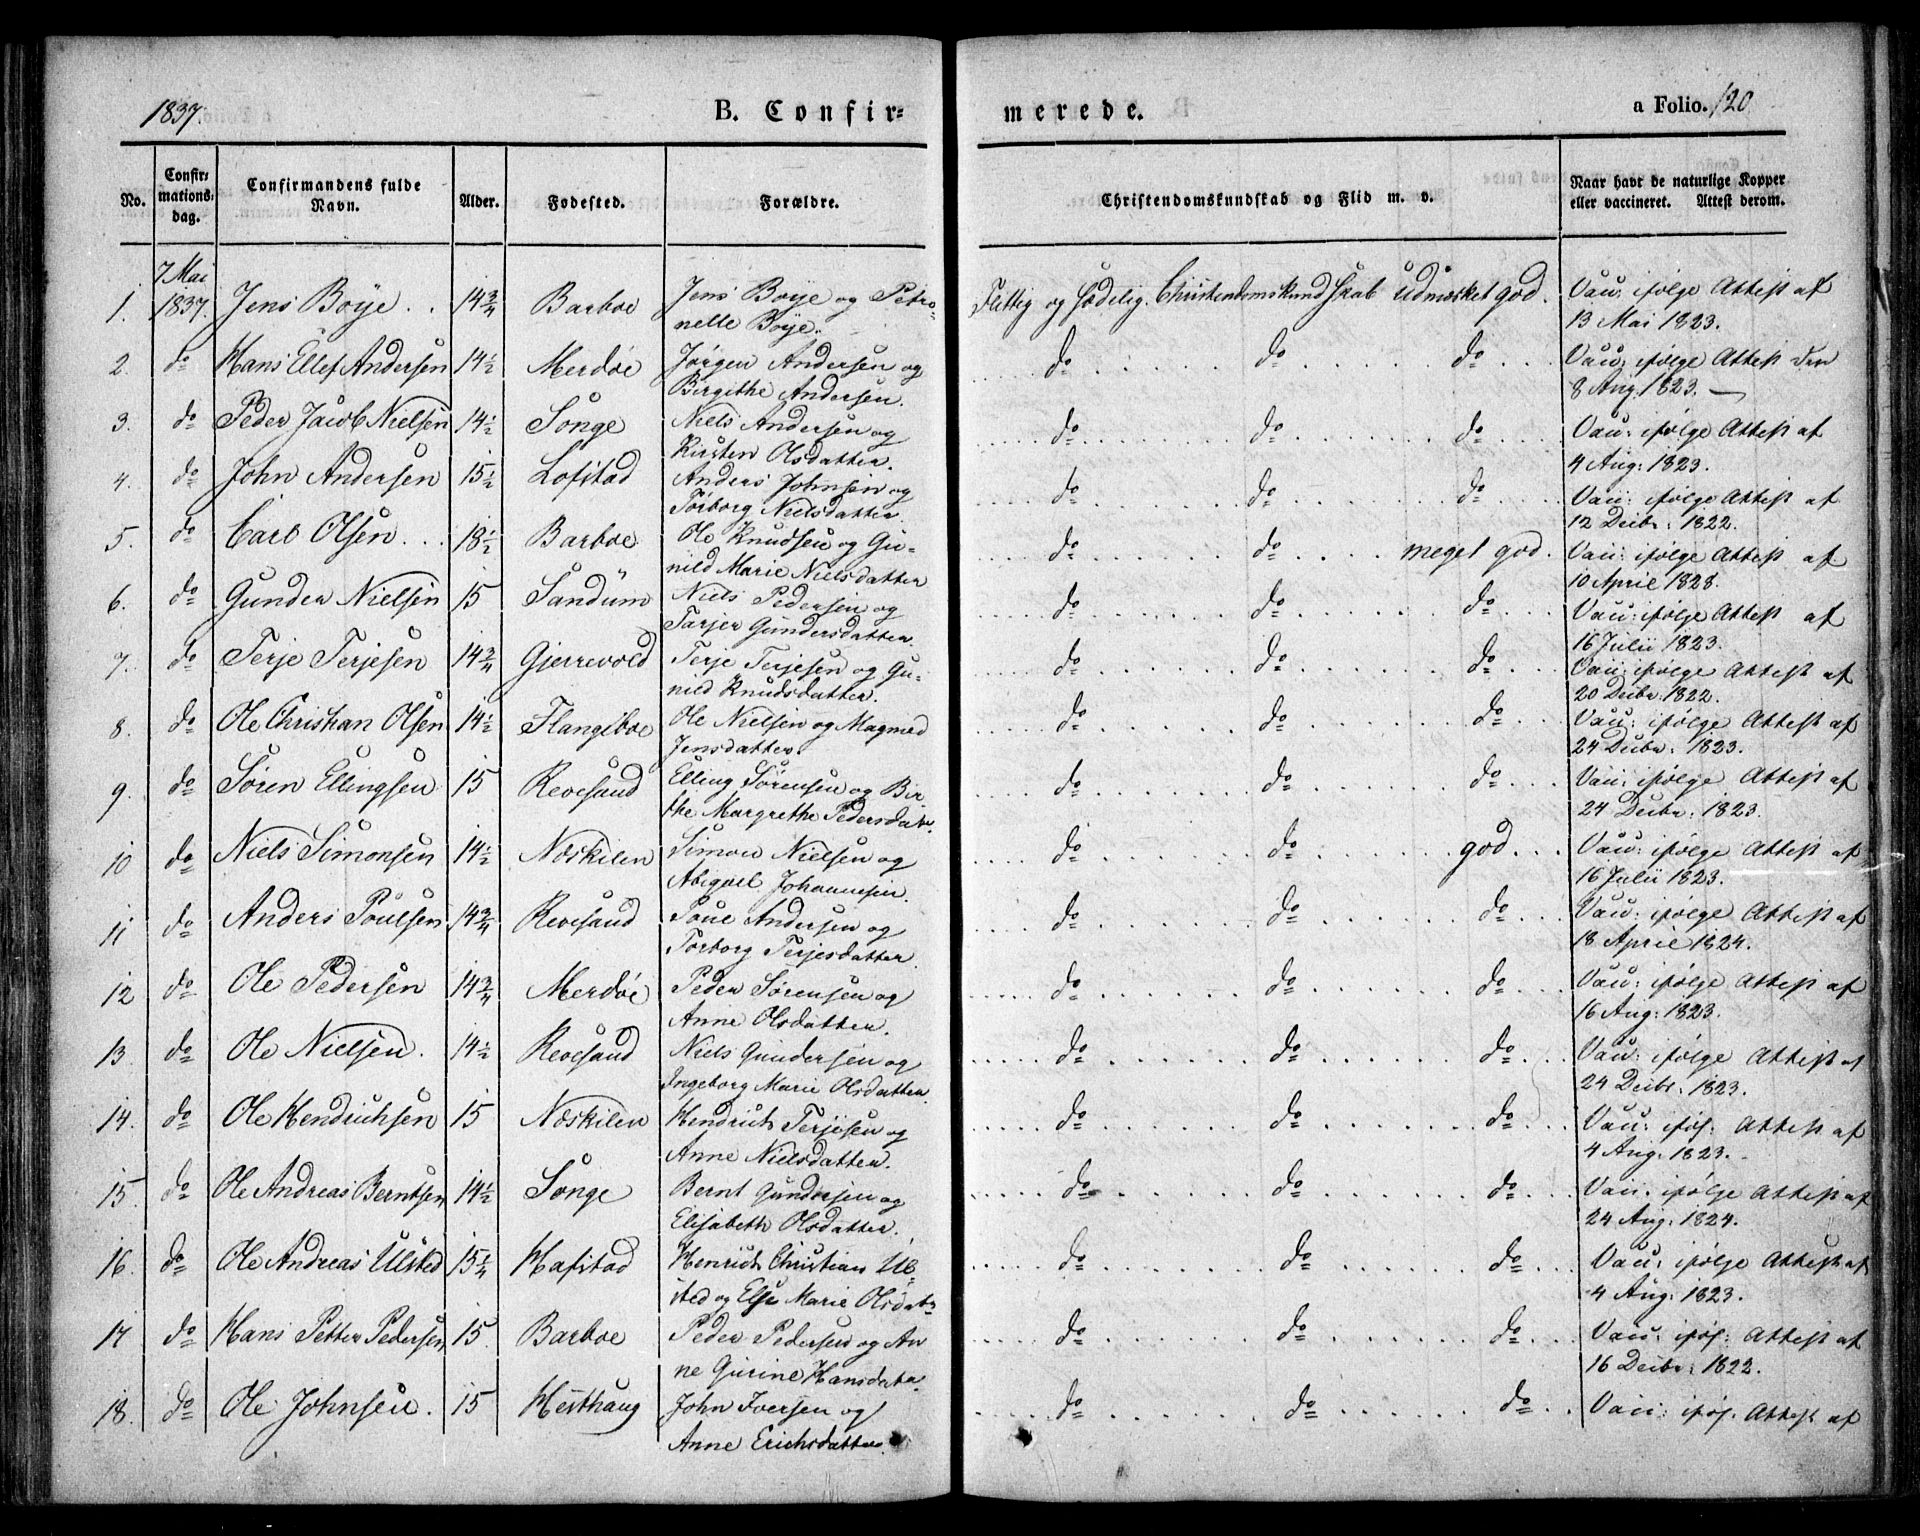 1837.
B. Confir=
merede.
a Folio. 120
No.
Confir=
mations=
dag.
Confirmandens fulde
Navn.
Alder.
Fødested.
Forældre.
Christendomskundskab og Flid m. v.
Naar havt de naturlige Kopper
eller vaccineret. Attest derom.
7 Mai
1. 1837. Jens Boye . . 14 3/4 Barboe Jens Boye og Petro=
nelle Boye. Flittig og sædelig. Christendomskundskab udmærket god. Vacc. ifølge Attest af
13 Mai 1823.
2. do Hans Ellef Andersen 14 1/2 Merdöe Jørgen Andersen og
Birgithe Andersen. do do do Vacc: ifølge Attest den
8 Aug. 1823. —
3. do Peder Jacob Nielsen 14 1/2 Songe Niels Andersen og
Kirsten Olsdatter. do do do Vacc: ifølge Attest af
4 Aug: 1823.
4. do John Andersen 15 1/2 Lofstad Anders Johnsen og
Torborg Nielsdatter. do do do Vacc: ifølge Attest af
12 Decbr: 1822.
5. do Carl Olsen . . . 18 1/2 Barboe Ole Knudsen og Gu=
nild Marie Nielsdatter do do meget god. Vacc: ifølge Attest af
10 April 1828.
6. do Gunder Nielsen 15 Sandum Niels Pedersen og
Tarjer Gundersdatter. do do do Vacc: ifølge Attest af
16 Julii 1823.
7. do Terje Terjesen 14 3/4 Gjerrevold Terje Terjesen og Gu=
nild Knudsdatter. do do do Vacc: ifølge Attest af
20 Decbr: 1822.
8. do Ole Christian Olsen 14 1/2 Flangeboe Ole Nielsen og Magned
Jensdatter. do do do Vacc: ifølge Attest af
24 Decbr: 1823.
9. do Sören Ellingsen 15 Revesand Elling Sørensen og Bir=
the Margrethe Pedersdatr. do do do Vacc: ifølge Attest af
24 Decbr: 1823.
10 do Niels Simonsen 14 1/2 Næskilen Simon Nielsen og
Abigael Johannesen. do do god . . . Vacc: ifølge Attest af
16 Julii 1823.
11 do Anders Poulsen 14 3/4 Revesand Poul Andersen og
Torborg Terjesdatter. do do do Vacc: ifølge Attest af
18 April 1824.
12 do Ole Pedersen 14 3/4 Merdöe Peder Sørensen og
Anne Olsdatter. do do do Vacc: ifølge Attest af
16 Aug: 1823.
13. do Ole Nielsen. 14 1/2 Revesand Niels Gundersen og
Ingeborg Marie Olsdatter. do do do Vacc: ifølge Attest af
24 Decbr: 1823.
14. do Ole Hendrichsen 15 Næskilen Hendrich Terjesen og
Anne Nielsdatter. do do do Vacc: iføl: Attest af
4 Aug: 1823.
15. do Ole Andreas Berntsen 14 1/2 Songe Bernt Gundersen og
Elisabeth Olsdatter. do do do Vacc: ifølge Attest af
24 Aug: 1824.
16. do Ole Andreas Ulsted 15 1/4 Hafstad Henrich Christian Ul=
sted og Else Marie Olsdatr do do do Vacc: ifølge Attest af
4 Aug: 1823.
17 do Hans Petter Pedersen 15 Barboe Peder Pedersen og An
ne Gurine Hansdatr. do do do Vacc: iføl: Attest af
16 Decbr: 1822.
18. do Ole Johnsen. 15 Hesthaug John Iversen og
Anne Erichsdatter. do do do Vacc: iføl. Attest af